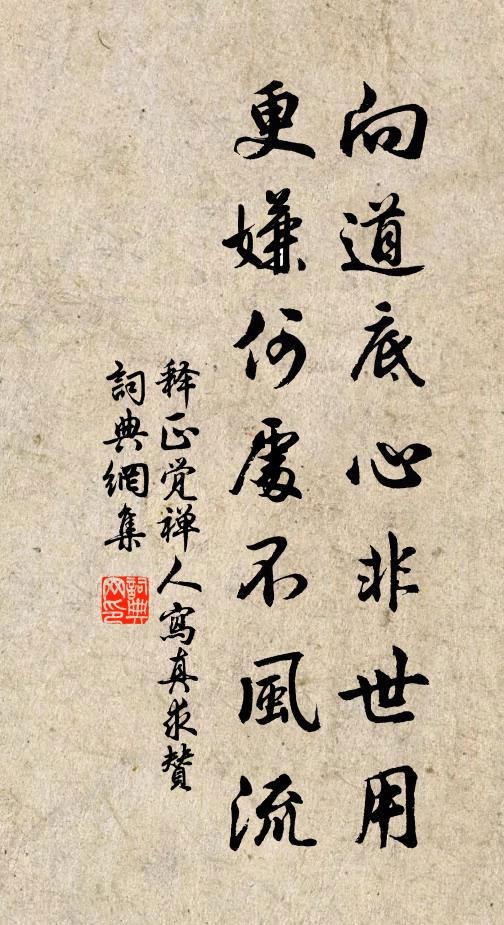 向道底心非世用
更嫌何處不風流
释正觉禅人寫真求贊
詞典網集
詞典网印